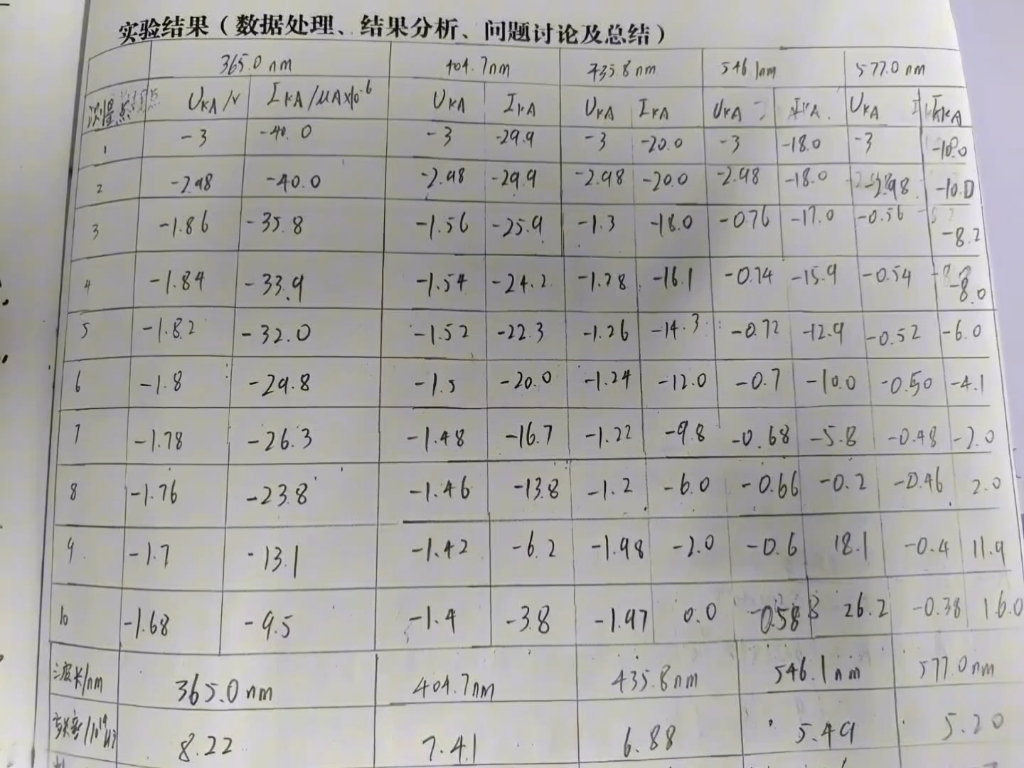 实验结果（数据处理、结果分析、问题讨论及总结）
365.0 nm 404.7nm 435.8 nm 546.1nm 577.0 nm
UKA/V IKA/μAx10-6 UKA IKA UKA IKA UKA IKA UKA IKA
1 -3 -40.0 -3 -29.9 -3 -20.0 -3 -18.0 -3 -10.0
2 -2.98 -40.0 -2.98 -29.9 -2.98 -20.0 -2.98 -18.0 -2.98 -10.0
3 -1.86 -35.8 -1.56 -25.9 -1.3 -18.0 -0.76 -17.0 -0.56 -8.2
4 -1.84 -33.9 -1.54 -24.2 -1.28 -16.1 -0.74 -15.9 -0.54 -8.0
5 -1.82 -32.0 -1.52 -22.3 -1.26 -14.3 -0.72 -12.9 -0.52 -6.0
6 -1.8 -29.8 -1.5 -20.0 -1.24 -12.0 -0.7 -10.0 -0.50 -4.1
7 -1.78 -26.3 -1.48 -16.7 -1.22 -9.8 -0.68 -5.8 -0.48 -2.0
8 -1.76 -23.8 -1.46 -13.8 -1.2 -6.0 -0.66 -0.2 -0.46 2.0
9 -1.7 -13.1 -1.42 -6.2 -1.98 -2.0 -0.6 18.1 -0.4 11.9
10 -1.68 -9.5 -1.4 -3.8 -1.97 0.0 -0.58 26.2 -0.38 16.0
波长/nm 365.0nm 404.7nm 435.8nm 546.1nm 577.0nm
8.22 7.41 6.88 5.49 5.20